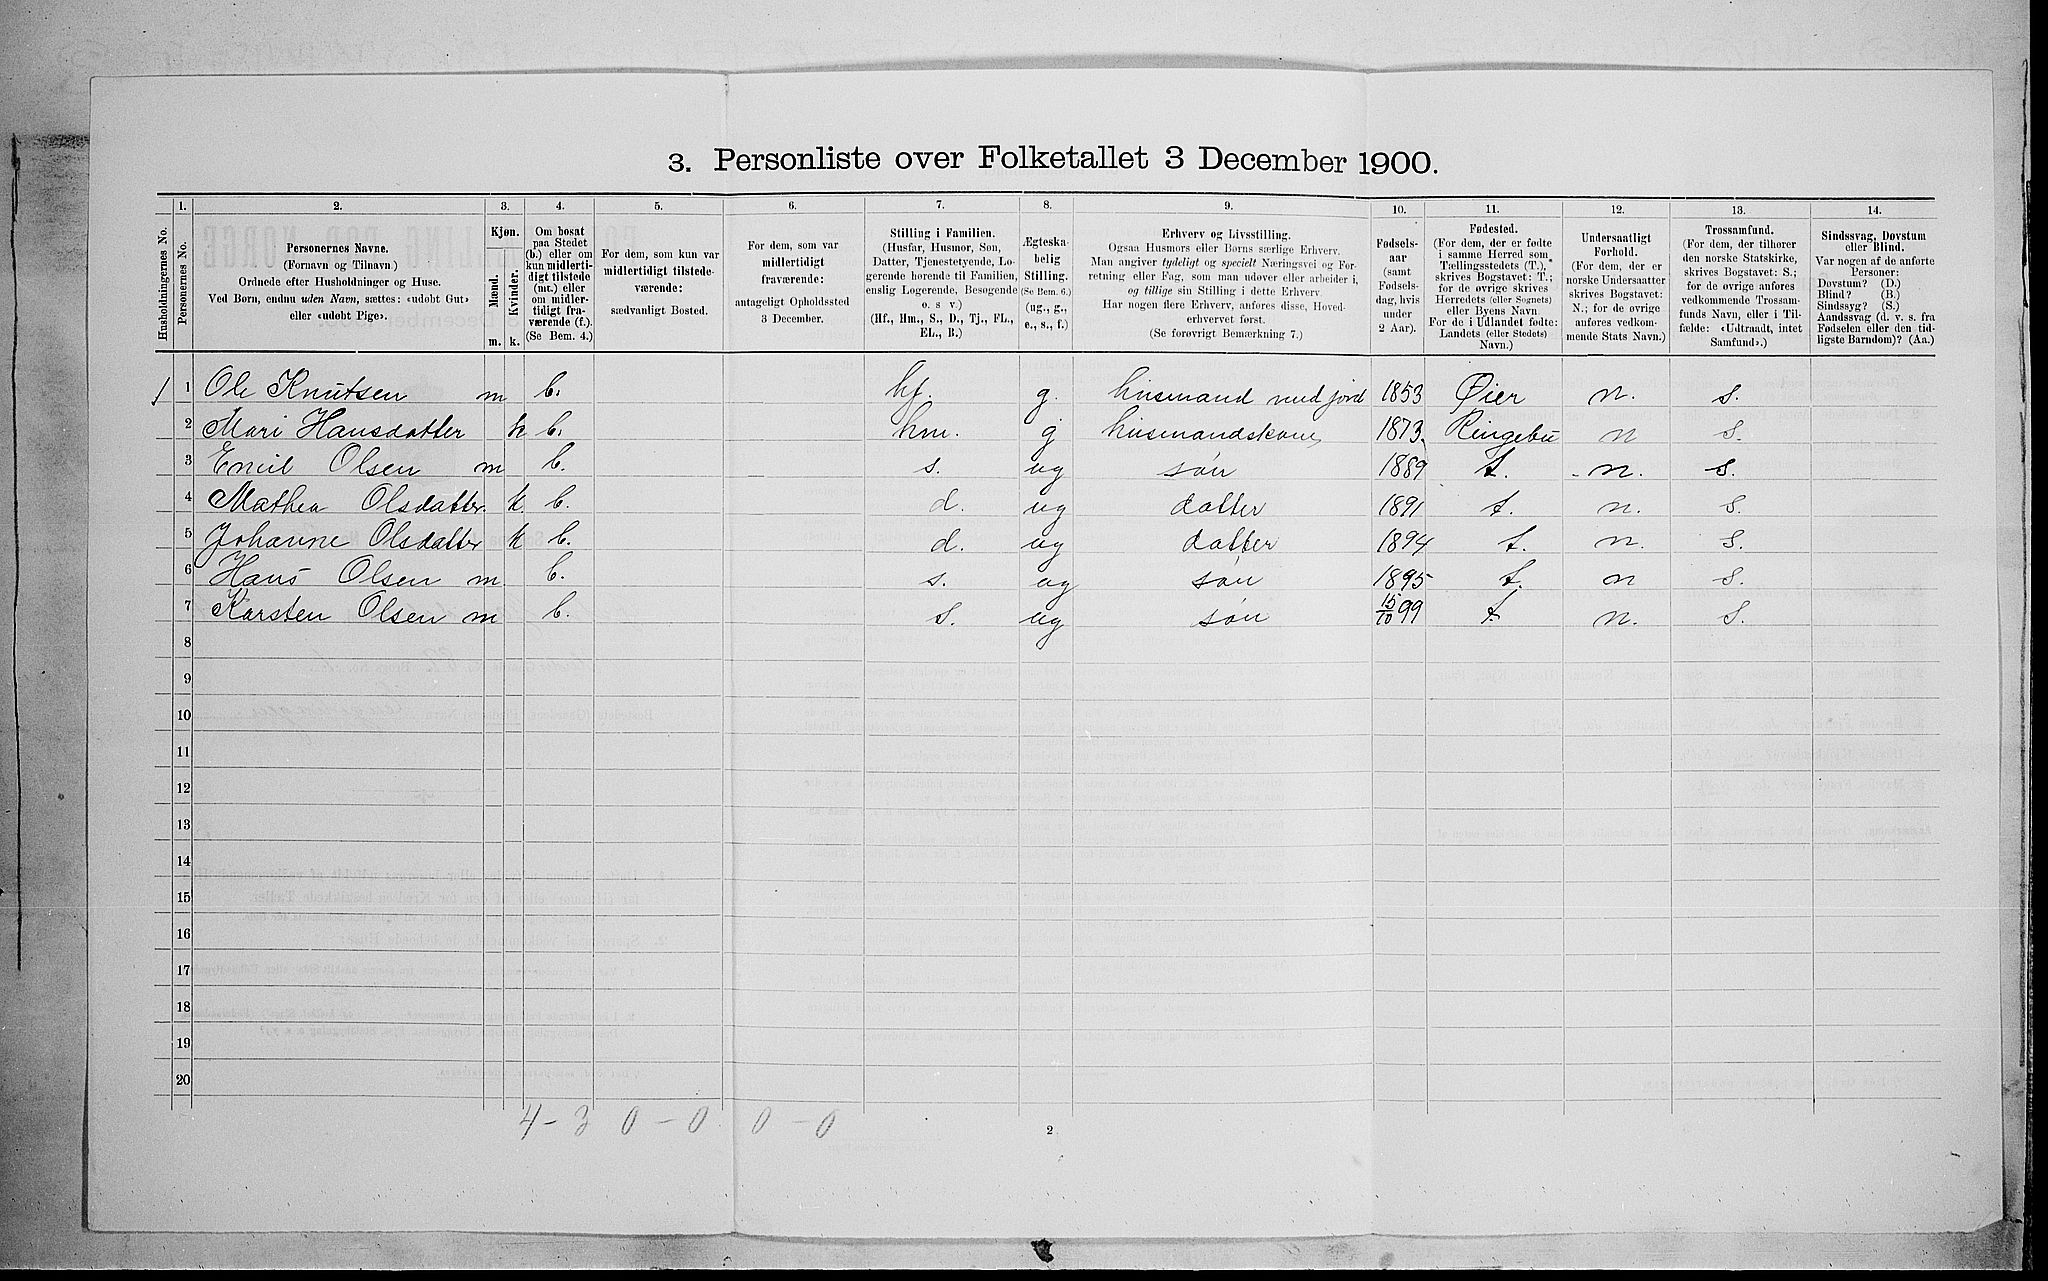 3. Personliste over Folketallet 3 December 1900.
1. 2. 3. 4. 5. 6. 7. 8. 9. 10. 11. 12. 13. 14.
Husholdningernes No.
Personernes No.
Personernes Navne.
(Fornavn og Tilnavn.)
Ordnede efter Husholdninger og Huse.
Ved Børn, endnu uden Navn, sættes: «udøbt Gut»
eller «udøbt Pige».
Kjøn.
Mænd.
Kvinder.
m. k.
Om bosat
paa Stedet
(b.) eller om
kun midlerti-
digt tilstede
(mt.) eller
om midler-
tidigt fra-
værende (f.)
(Se Bem. 4.)
For dem, som kun var
midlertidigt tilstede-
værende:
sædvanligt Bosted.
For dem, som var
midlertidigt
fraværende:
antageligt Opholdssted
3 December.
Stilling i Familien.
(Husfar, Husmor, Søn,
Datter, Tjenestetyende, Lo-
gerende hørende til Familien,
enslig Logerende, Besøgende
o. s v.)
(Hf., Hm., S., D., Tj., FL.,
EL., B.)
Ægteska-
belig
Stilling.
(Se Bem. 6.)
(ug., g.,
e., s., f.)
Erhverv og Livsstilling.
Ogsaa Husmors eller Børns særlige Erhverv.
Man angiver tydeligt og specielt Næringsvei og For-
retning eller Fag, som man udøver eller arbeider i,
og tillige sin Stilling i dette Erhverv.
Har nogen flere Erhverv, anføres disse, Hoved-
erhvervet først.
(Se forøvrigt Bemærkning 7.)
Fødsels-
aar
(samt
Fødsels-
dag, hvis
under
2 Aar).
Fødested.
(For dem, der er fødte
i samme Herred som
Tællingsstedets (T.),
skrives Bogstavet: T.;
for de øvrige skrives
Herredets (eller Sognets)
eller Byens Navn.
For de i Udlandet fødte:
Landets (eller Stedets)
Navn.)
Undersaatligt
Forhold.
(For dem, der er
norske Undersaatter
skrives Bogstavet:
N.; for de øvrige
anføres vedkom-
mende Stats Navn.)
Trossamfund.
(For dem, der tilhører
den norske Statskirke,
skrives Bogstavet: S.;
for de øvrige anføres
vedkommende Trossam-
funds Navn, eller i Til-
fælde: «Udtraadt, intet
Samfund».)
Sindssvag, Døvstum
eller Blind.
Var nogen af de anførte
Personer:
Døvstum? (D.)
Blind? (B.)
Sindssyg? (S.)
Aandssvag (d. v. s. fra
Fødselen eller den tid-
ligste Barndom)? (Aa.)
1 1 Ole Knutsen m b. hf. g. husmand med jord 1853 Øier n. s.
2 Mari Hansdatter k b. hm. g husmandskone 1873 Ringebu n s.
3 Emil Olsen m b. s. ug søn 1889 t. n. s.
4 Mathea Olsdatter. k. b. d. ug datter 1891 t. n. s.
5 Johanne Olsdatter k b. d. ug datter 1894 t. n. s.
6 Hans Olsen m b. s. ug søn 1895 t. n s.
7 Karsten Olsen m b. s. ug søn 15/10 99 t. n. s.
8
9
10
11
12
13
14
15
16
17
18
19
20
4 - 3 0 - 0 0 - 0
2